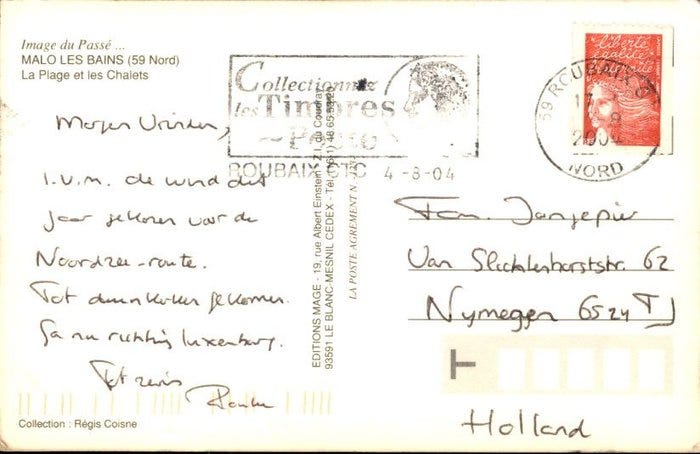 Image du Passé ...
MALO LES BAINS (59 Nord)
La Plage et les Chalets
Collectionnez
les Timbres
~ Poste
ROUBAIX CTC 4-8-04
liberté
égalité
fraternité
59 ROUBAIX
2004
NORD
Morgen Vrienden,
I.V.M. de wind dit
jaar gekozen voor de
Noordzee-route.
Tot duinkerken gekomen.
Ga nu richting Luxemburg.
Tot ziens
EDITIONS MAGE - 19, rue Albert Einstein - Z.I. du Coudray
93591 LE BLANC-MESNIL CEDEX - Tél.
LA POSTE AGREMENT N
Fam. Jansepier
Van Slichtenhorststr. 62
Nymegen 6524 TJ
Holland
T
Collection : Régis Coisne